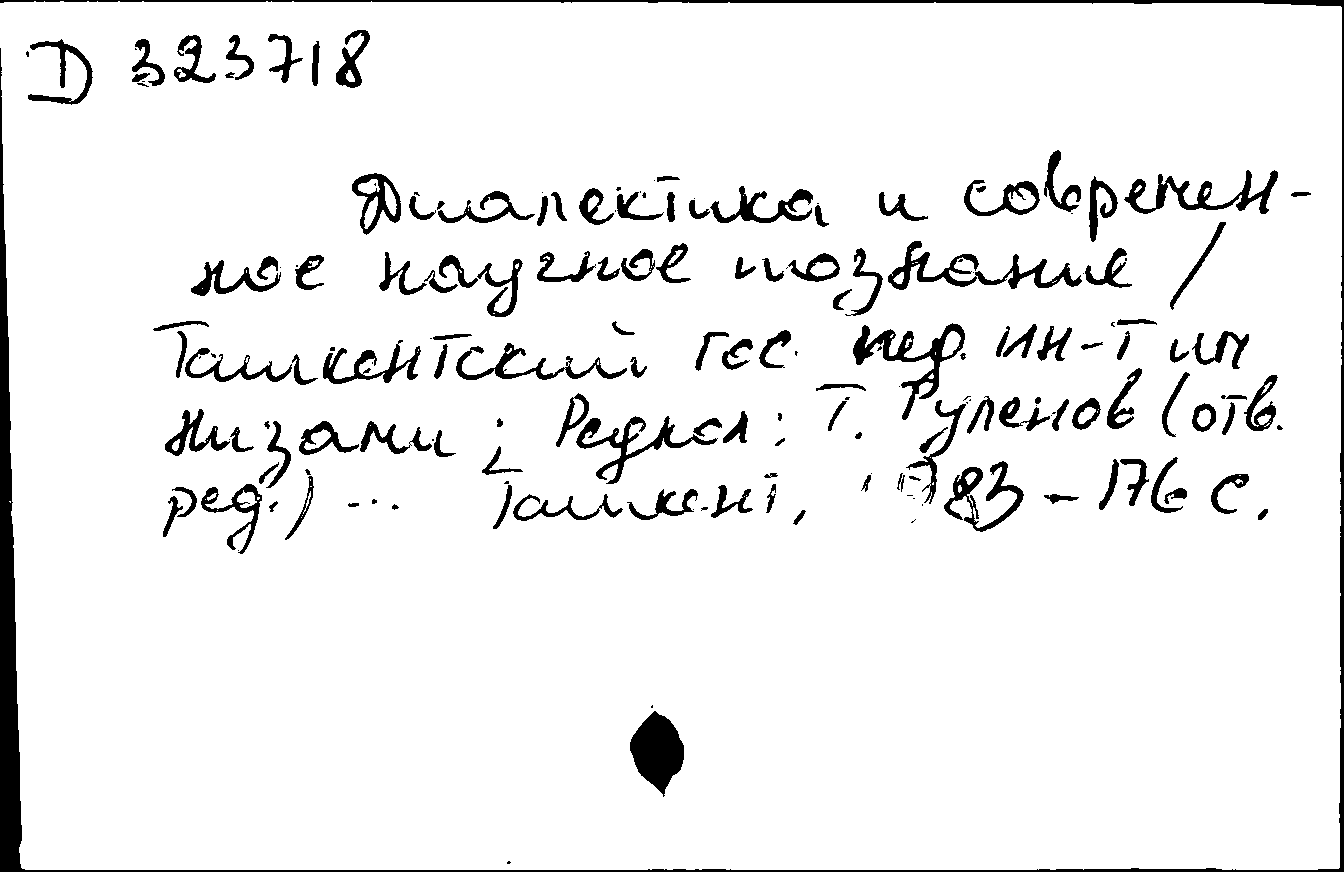 D 323718
Диалектика и современ-
ное научное познание /
Ташкентский гос. пед. ин-т им
Низами ; Редкол : Т. Туленов (отв.
ред.) ... Ташкент, 1983 - 176 с.